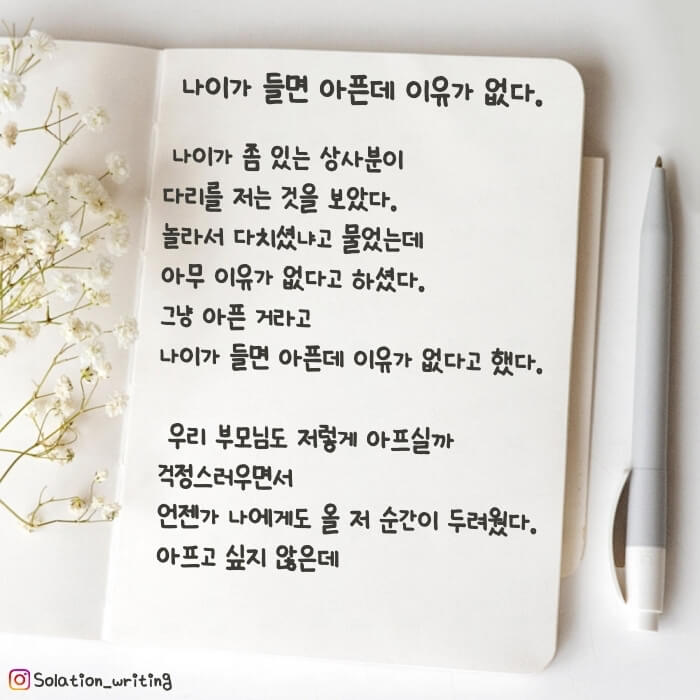 나이가 들면 아픈데 이유가 없다.
나이가 좀 있는 상사분이
다리를 저는 것을 보았다.
놀라서 다치셨냐고 물었는데
아무 이유가 없다고 하셨다.
그냥 아픈 거라고
나이가 들면 아픈데 이유가 없다고 했다.
우리 부모님도 저렇게 아프실까
걱정스러우면서
언젠가 나에게도 올 저 순간이 두려웠다.
아프고 싶지 않은데
Solation_writing